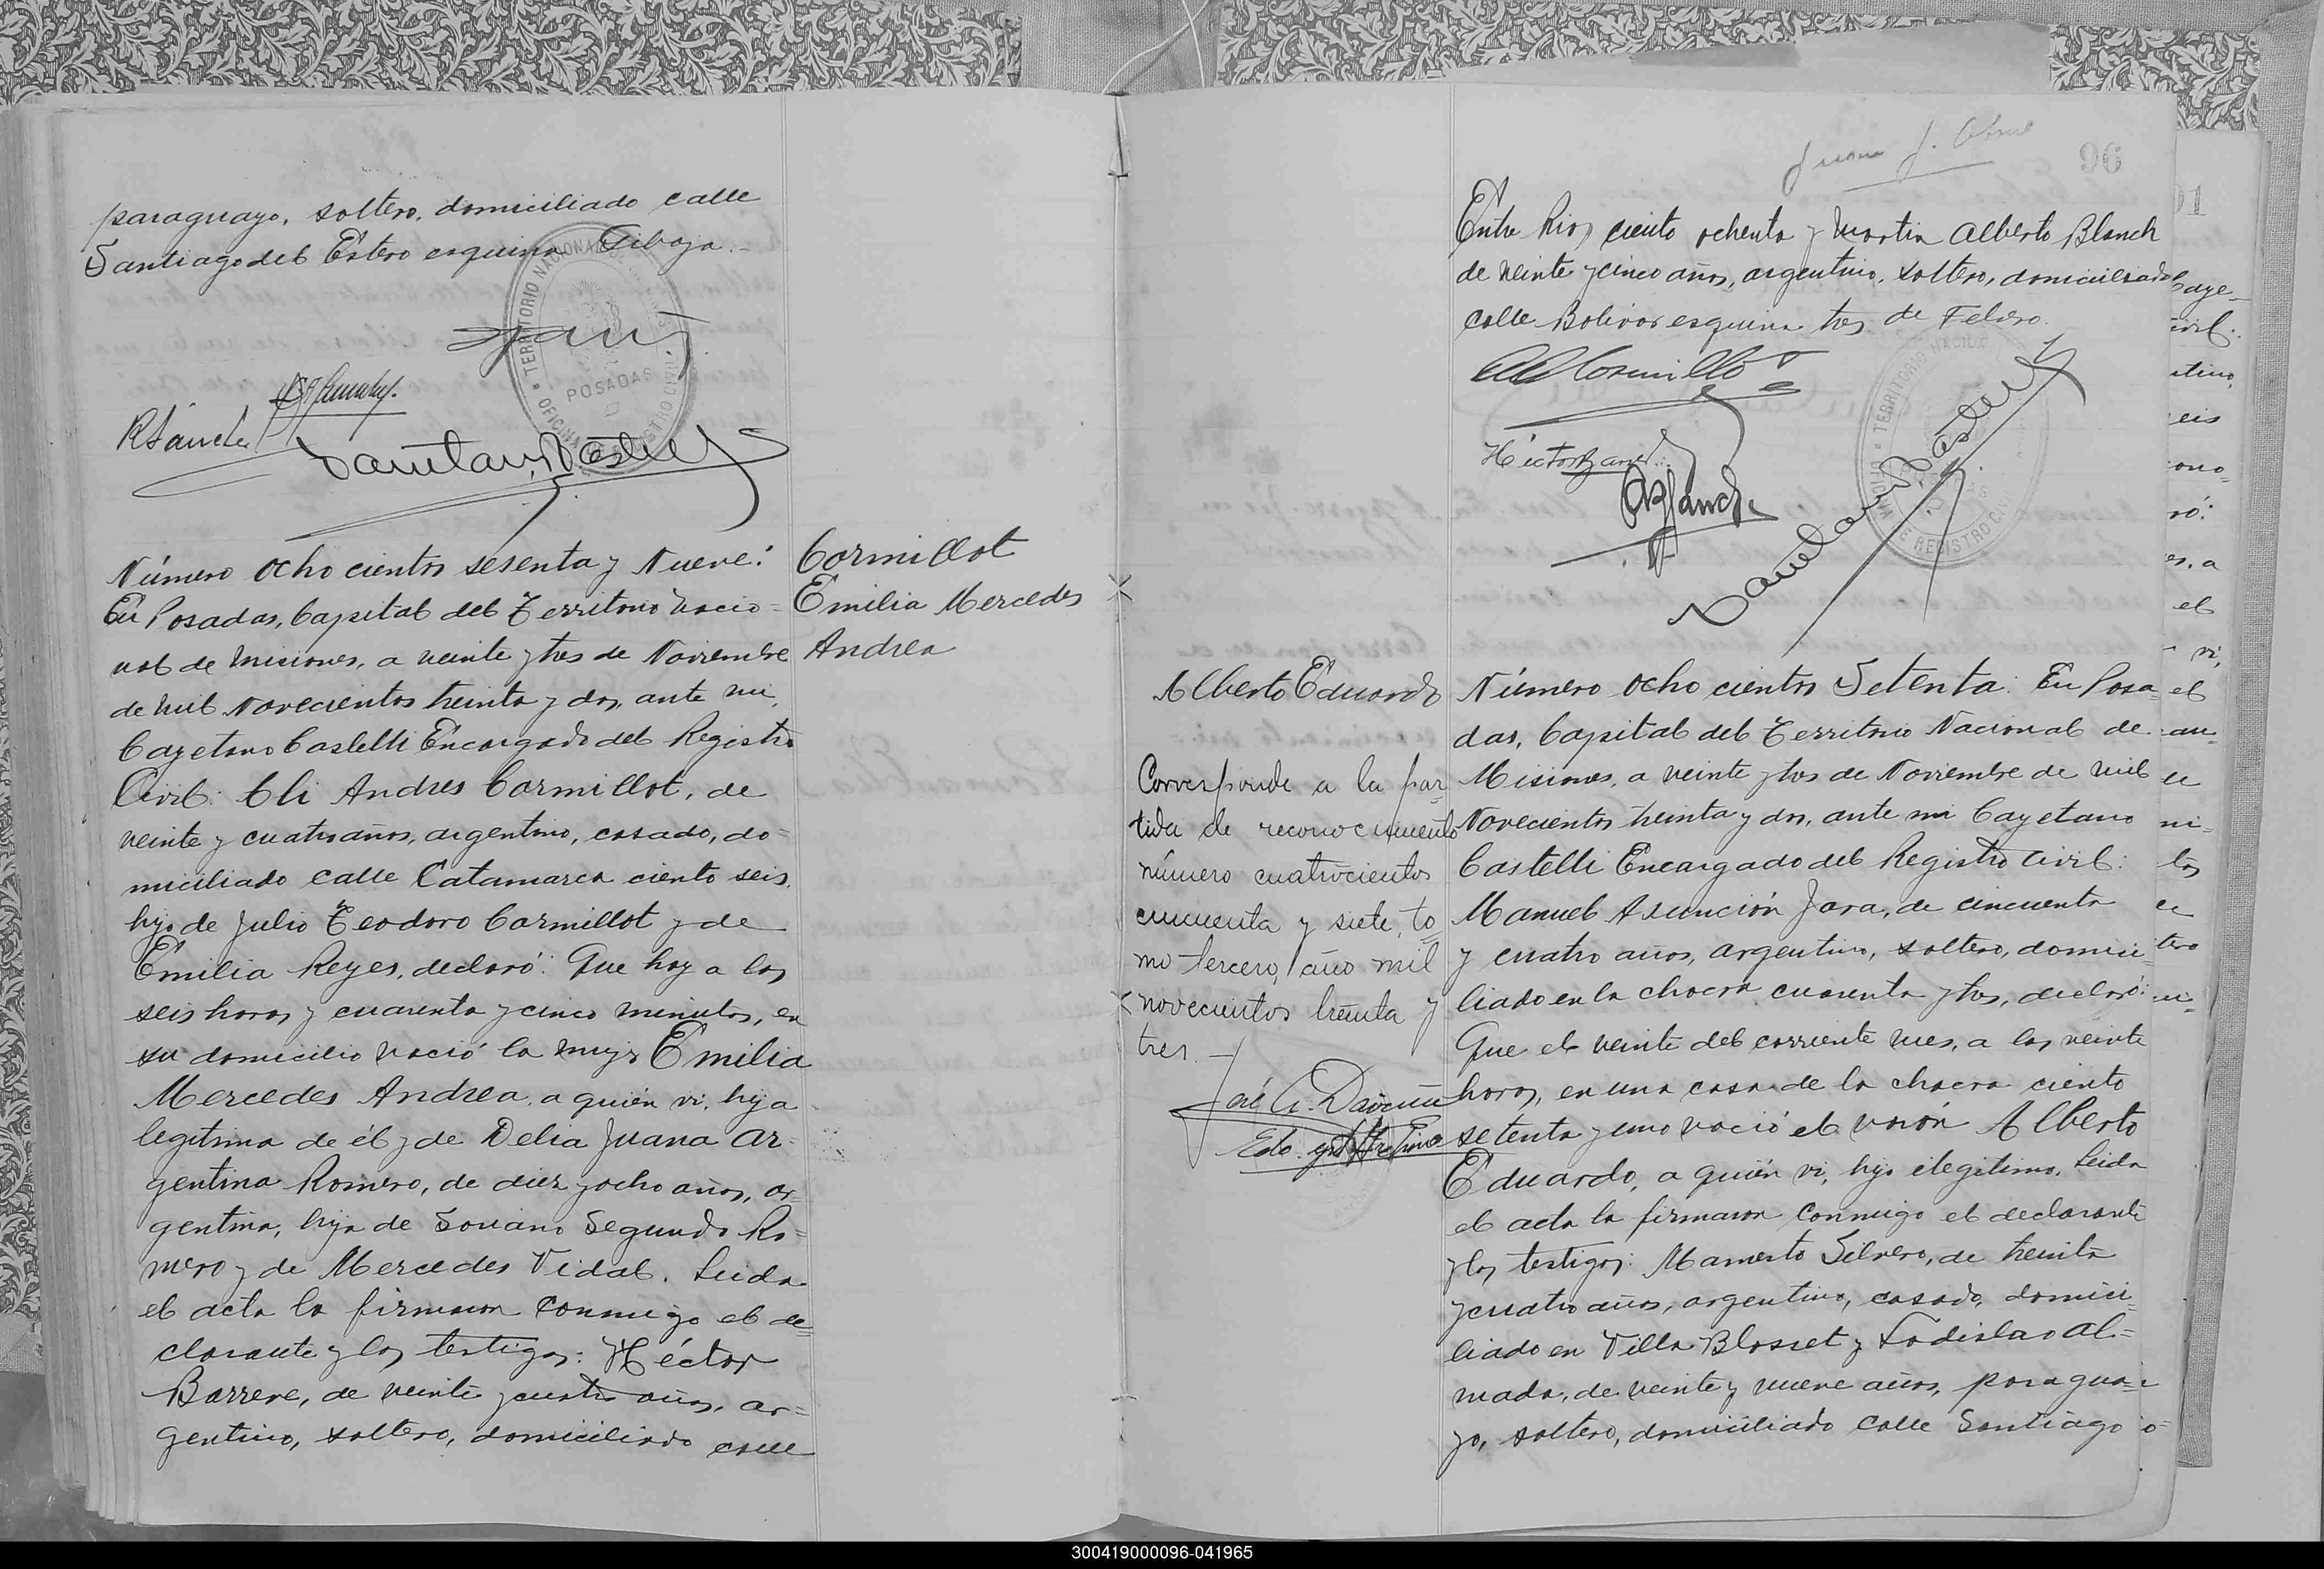 paraguayo, soltero, domiciliado calle
Santiago del Estero esquina Tibaja.=
TERRITORIO NACIONAL
POSADAS
OFICINA REGISTRO CIVIL
RSanchez
Cormillot
Emilia Mercedes
Andrea
Número Ocho cientos sesenta y Nueve:
En Posadas, Capital del Territorio Nacio=
nal de Misiones, a veinte y tres de Noviembre
de mil Novecientos treinta y dos, ante mi,
Cayetano Castelli Encargado del Registro
Civil: Eli Andres Cormillot, de
veinte y cuatro años, argentino, casado, do=
miciliado calle Catamarca ciento seis,
hijo de Julio Teodoro Cormillot y de
Emilia Reyes, declaró: Que hoy a las
seis horas y cuarenta y cinco minutos, en
su domicilio nació la mujer Emilia
Mercedes Andrea, a quién vi, hija
legitima de él y de Delia Juana Ar=
gentina Romero, de diez y ocho años, ar=
gentina, hija de Soriano Segundo Ro=
mero y de Mercedes Vidal. Leida
el acta la firmaron conmigo el de=
clarante y los testigos: Héctor
Barrere, de veinte y cuatro años, ar=
gentino, soltero, domiciliado calle
Juan J.
96
Entre Rios ciento ochenta y Martin Alberto Blanch
de veinte y cinco años, argentino, soltero, domiciliado
calle Bolivar esquina tres de Febrero.
Cormillot
Hector Barrere
ABlanch
TERRITORIO NACIONAL
REGISTRO CIVIL
Alberto Eduardo
Corresponde a la par=
tida de reconocimiento
número cuatrocientos
cincuenta y siete, to=
mo tercero, año mil
novecientos treinta y
tres. —
Número Ocho cientos Setenta: En Posa=
das, Capital del Territorio Nacional de
Misiones, a veinte y tres de Noviembre de mil
Novecientos treinta y dos, ante mi Cayetano
Castelli Encargado del Registro Civil:
Manuel Asunción Jara, de cincuenta
y cuatro años, argentino, soltero, domici=
liado en la chacra cuarenta y tres, declaró:
Que el veinte del corriente mes, a las veinte
horas, en una casa de la chacra ciento
setenta y uno nació el varón Alberto
Eduardo, a quién vi, hijo ilegitimo. Leida
el acta la firmaron conmigo el declarante
y los testigos: Mamerto Silvero, de treinta
y cuatro años, argentino, casado, domici=
liado en Villa Blosset y Ladislao Al=
mada, de veinte y nueve años, paragua=
yo, soltero, domiciliado calle Santiago
300419000096-041965